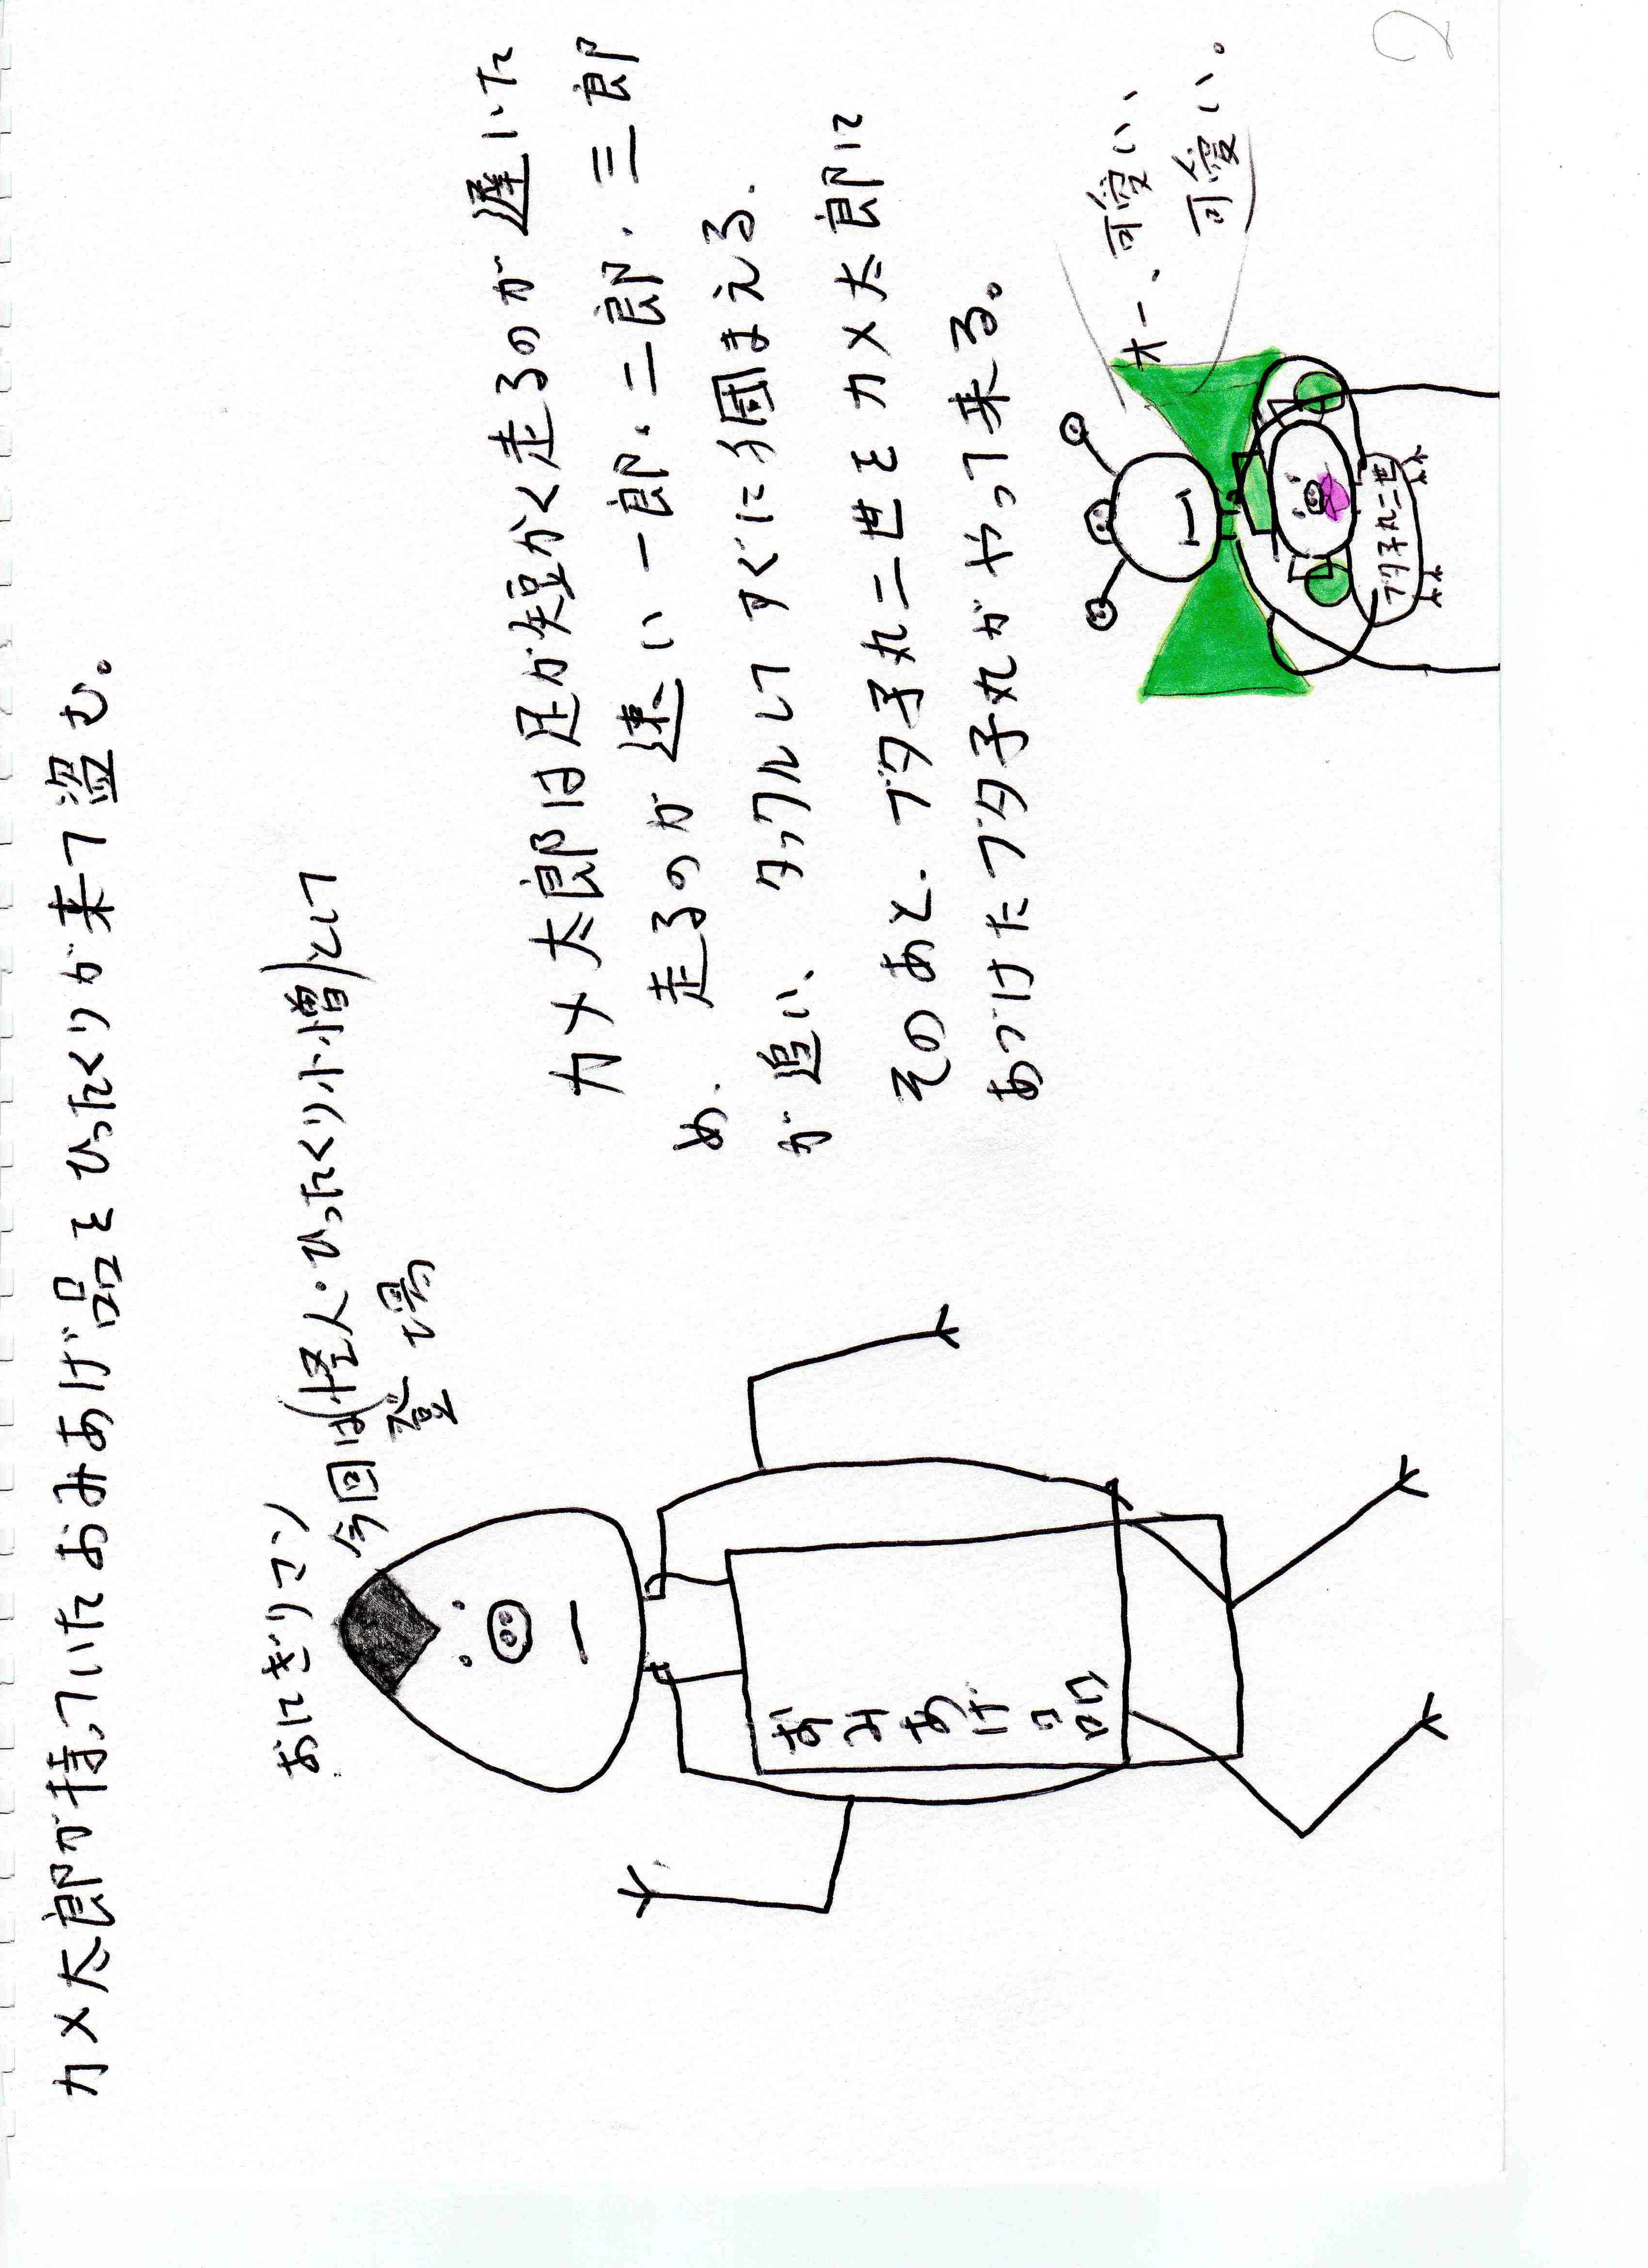 カメ太郎が持っていたおみあげ品をひったくりが来て盗む。
おにぎりマン
今回は(怪人・ひったくり小僧)として
登場
おみあげ品
カメ太郎は足が短かく走るのが遅いた
め、走るのが速い一郎、二郎、三郎
が追い、タックルしてすぐに
まえる。
そのあと、ブタ子丸二世をカメ太郎に
あづけたブタ子丸がやって来る。
オー、可愛い、
可愛い。
ブタ子丸二世
2